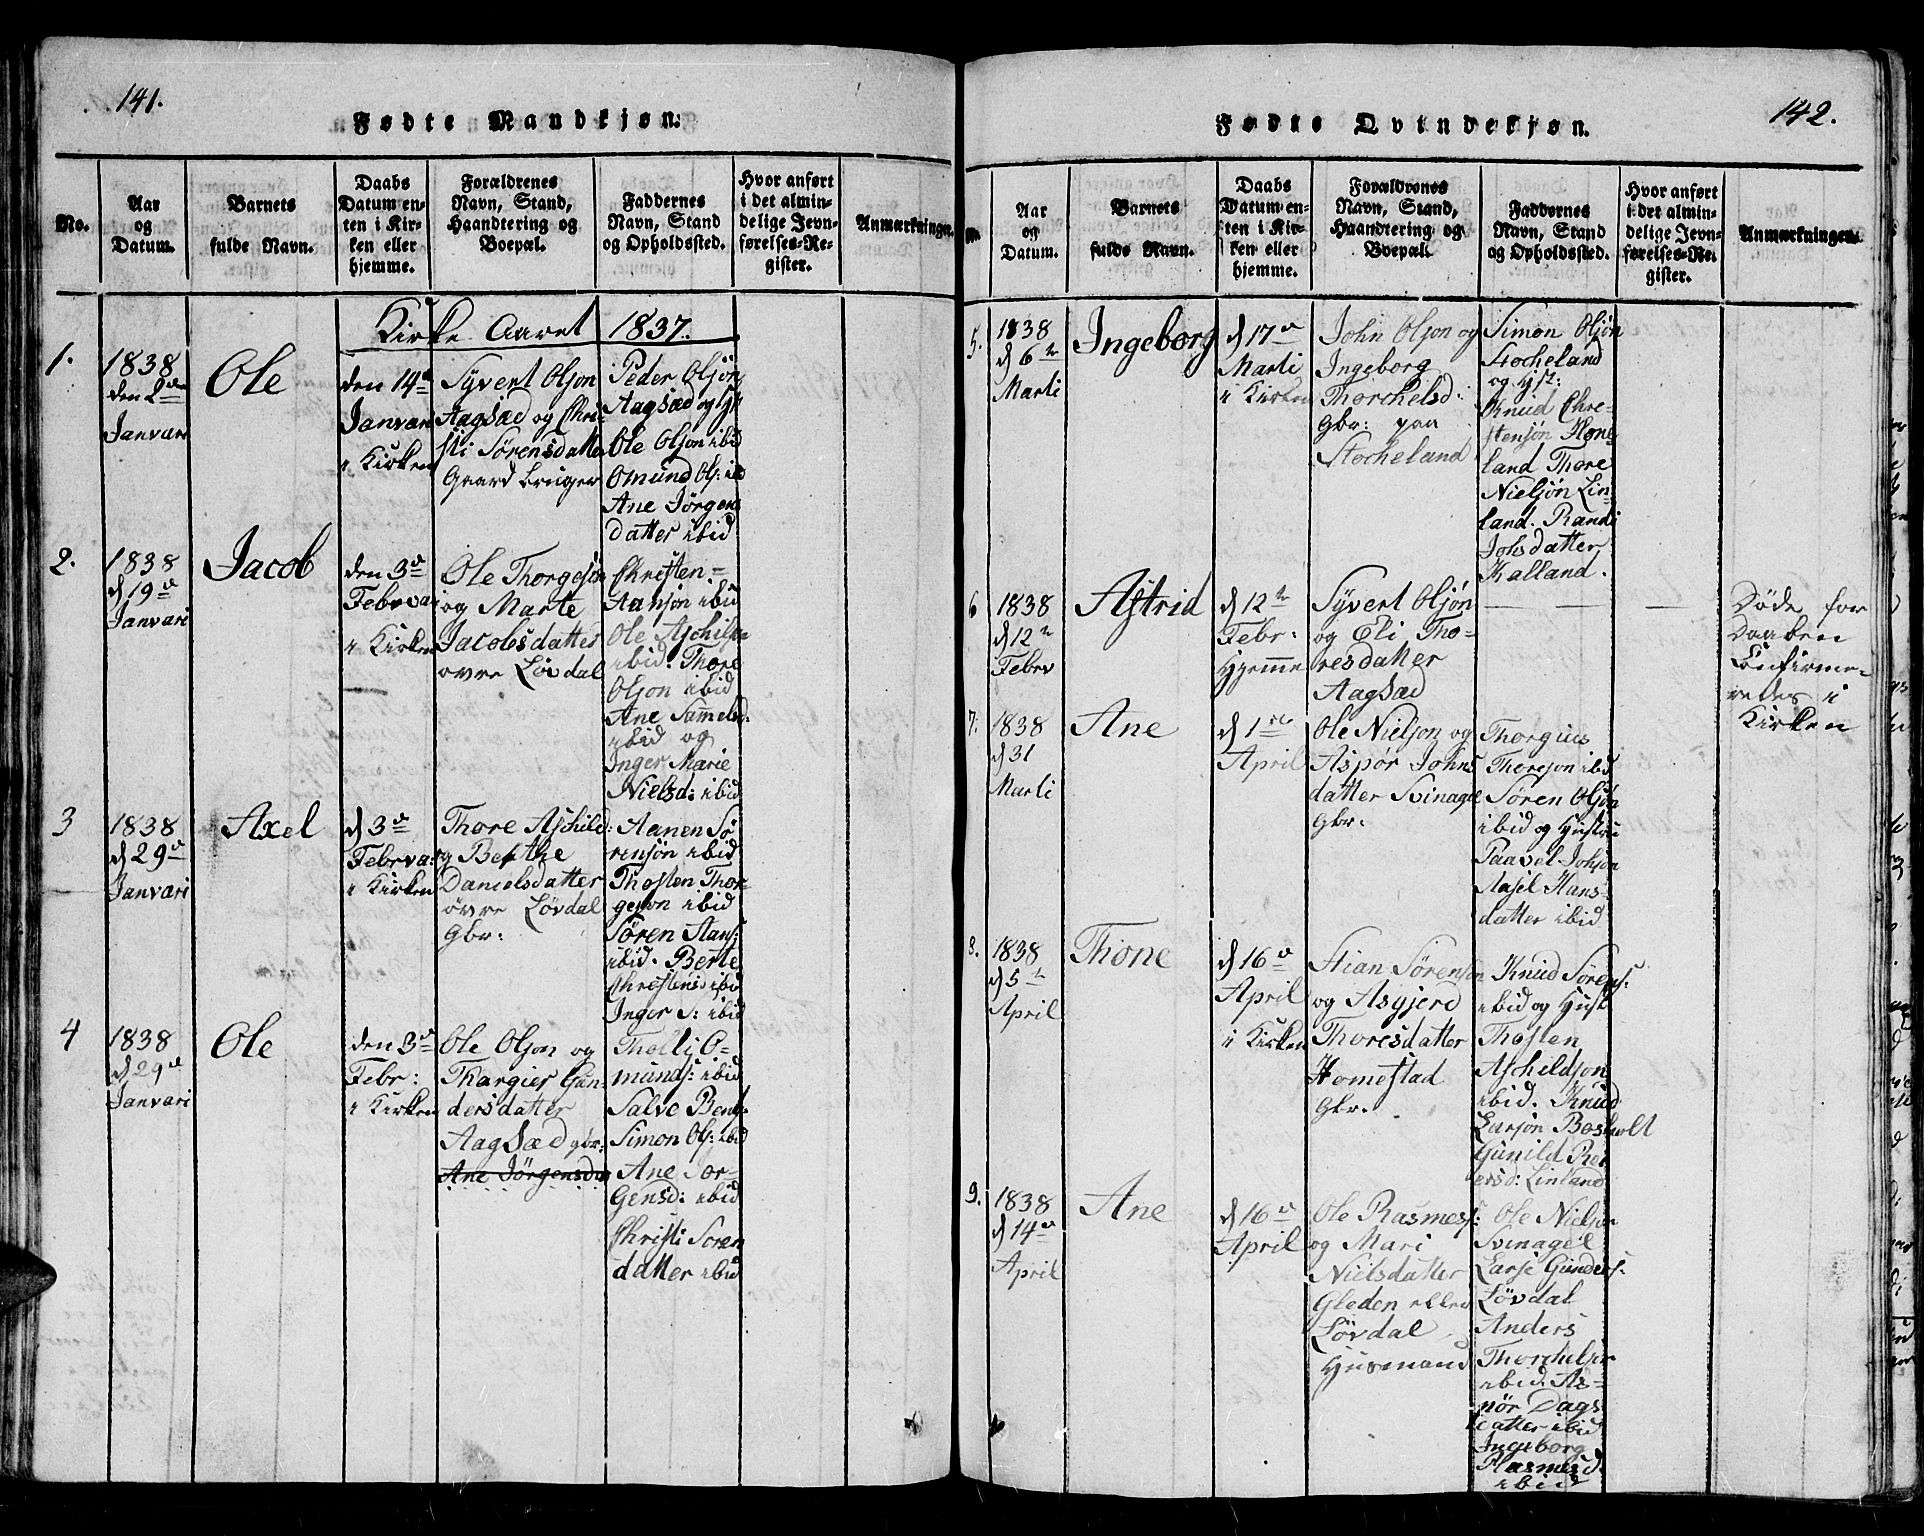 141.
Fødte Mandkjøn.
No.
Aar
og
Datum.
Barnets
fulde Navn.
Daabs
Datum en-
ten i Kir-
ken eller
hjemme.
Forældrenes
Navn, Stand,
Haandtering og
Boepæl.
Faddernes
Navn, Stand
og Opholdssted.
Hvor anført
i det almin-
delige Jevn-
førelses-Re-
gister.
Anmærkninger.
Kirke Aaret 1837.
1.
1838
den 2den
Janvari
Ole
den 14de
Janvari
i Kirken
Syvert Olson
Aagsæd og Chri-
sti Sørensdatter
Gaard bruger
Peder Olsøn
Aagsæd og Hst
Ole Olson ibid
Omund Ols: ibid
Ane Jørgens
datter ibid
2.
1838
d 19de
Janvari
Jacob
den 3de
Februa
i Kirken
Ole Thorgesøn
og Marte
Jacobsdatter
øvre Løvdal
Christen
Aansøn ibid
Ole Aschilsøn
ibid. Thore
Olson ibid
Ane Sammelsd:
ibid og
Inger Marie
Nielsd: ibid
3
1838
d 29de
Janvari
Axel
d 3de
Februa:
i Kirken
Thore Aschild:
og Berthe
Danielsdatter
øvre Løvdal
Gbr:
Aanen Sø-
rensøn ibid
Thosten Thor-
geson ibid
Søren Aans:
ibid. Berte
Christens ibid
Inger S: ibid
4
1838
d 29de
Janvari
Ole
den 3de
Febr:
i Kirken
Ole Olson og
Thargier Gun-
dersdatter
Aagsæd gbr:
Ane Jørgensda
Tholli O-
munds: ibid
Salve Bent-
Simon Ols: ibid
Ane Jor-
Gensd: ibid
Christi Soren
datter ibid
142.
Fødte Qvindekjøn.
Aar
og
Datum.
Barnets
fulde Navn.
Daabs
Datum en-
ten i Kir-
ken eller
hjemme.
Forældrenes
Navn, Stand,
Haandtering og
Boepæl.
Faddernes
Navn, Stand
og Opholdssted.
Hvor anført
i det almin-
delige Jevn-
førelses-Re-
gister.
Anmærkninger.
5.
1838
d 6te
Marti
Ingeborg
d 17de
Marti
i Kirken
John Olson og
Ingeborg
Thorchelsd:
Gbr: paa
Stocheland
Simon Olsøn
Stocheland
og Hst:
Knud Chre-
stensøn Hone
land Thore
Nielsøn Lin-
land. Randi
Johsdatter
Kalland.
6
1838
d 12te
Febrv
Astrid
d 12te
Febr:
Hjemme
Syvert Olsøn
og Eli Tho-
resdatter
Aagsæd
Døde for
Daaben
Confirme-
redes i
Kirken
7:
1838
d 31
Marti
Ane
d 1ste
April
Ole Nielson og
Aspør Johns
datter Svinagel
Gbr:
Thorgius
Thoreson ibid
Søren Olsøn
ibid og Hustru
Paavel Johson
Aasel Hans-
datter ibid
8.
1838
d 5te
April
Thone
d 16de
April
i Kirken
Stian Sørenson
og Asgjerd
Thoresdatter
Homestad
Gbr.
Knud Sorens:
ibid og Hust
Thosten
Aschildson
ibid. Knud
Larsøn Bosholt
Gunild Pee
ersd: Linland
9.
1838
d 14de
April
Ane
d 16de
April
Ole Rasmess:
og Mari
Nielsdatter
Gleden eller
Løvdal
Husmand
Ole Nielson
Svinagel
Larse Gunders:
Løvdal
Anders
Thorchelsøn
ibid. As-
pör Dags
datter ibid
Ingeborg
Rasmesd.
ibid